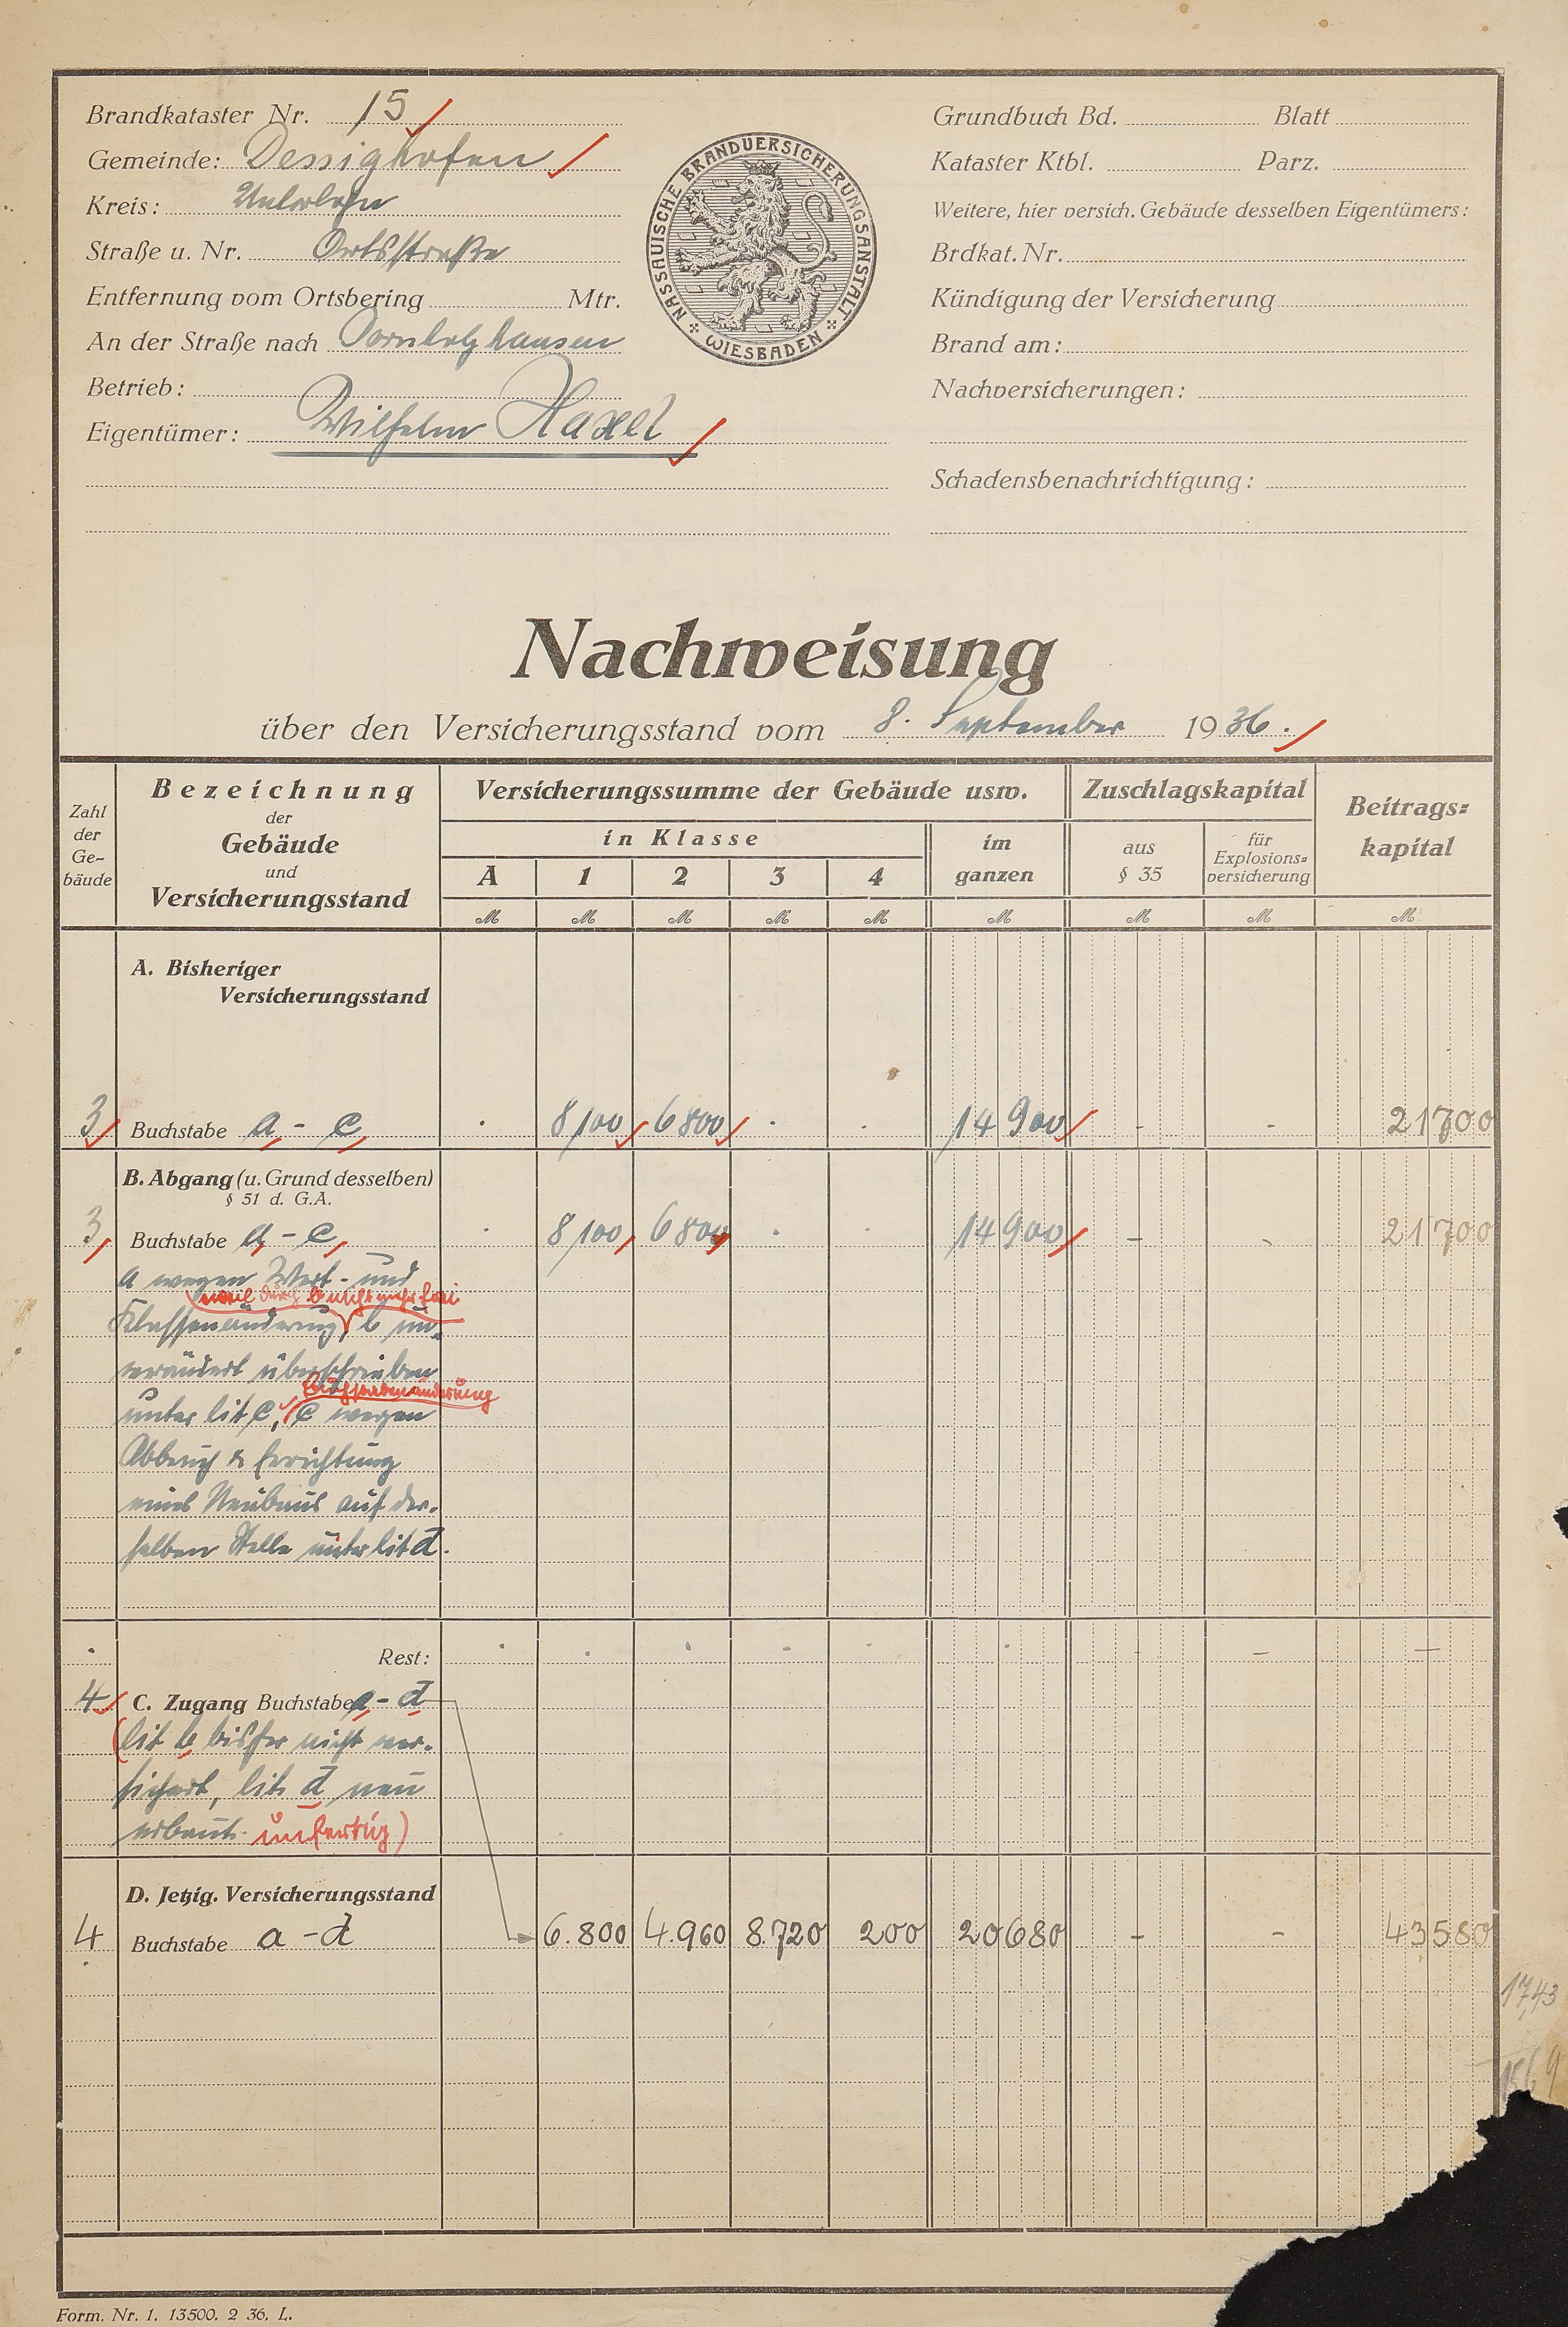 Brandkataster Nr. 15
Gemeinde: Dessighofen
Kreis: Unterlahn
Straße u. Nr. Ortsstraße
Entfernung vom Ortsbering Mtr.
An der Straße nach Dornholzhausen
Betrieb:
Eigentümer: Wilhelm Haxel
NASSAUISCHE BRANDVERSICHERUNGSANSTALT
WIESBADEN
Grundbuch Bd. Blatt
Kataster Ktbl. Parz.
Weitere, hier versich. Gebäude desselben Eigentümers:
Brdkat. Nr.
Kündigung der Versicherung
Brand am:
Nachversicherungen:
Schadensbenachrichtigung:
Nachweisung
über den Versicherungsstand vom 8. September 1936.
Zahl der Ge-bäude
Bezeichnung der Gebäude und Versicherungsstand
Versicherungssumme der Gebäude usw.
in Klasse
A 1 2 3 4
im ganzen
Zuschlagskapital
aus § 35
für Explosions-versicherung
Beitrags-kapital
M M M M M M M M M
A. Bisheriger
Versicherungsstand
3 Buchstabe a - c . 8100 6800 . . 14900 - - 21700
B. Abgang (u. Grund desselben)
§ 51 d. G.A.
3 Buchstabe a - c . 8100 6800 . . 14900 - - 21700
a wegen Wert- und
weil durch b nicht mehr frei
Klassenänderung, b un-
verändert überschrieben
Buchstabenänderung
unter lit c, c wegen
Abbruch & Errichtung
eines Neubaus auf der-
selben Stelle unter lit d.
. Rest: . . . . . . - - -
4 C. Zugang Buchstabe a - d
(lit b bisher nicht ver-
sichert, lit. d neu
erbaut. unfertig)
D. Jetzig. Versicherungsstand
4 Buchstabe a - d 6.800 4.960 8.720 200 20680 - - 43580
17,43
Form. Nr. 1. 13500. 2 36. L.